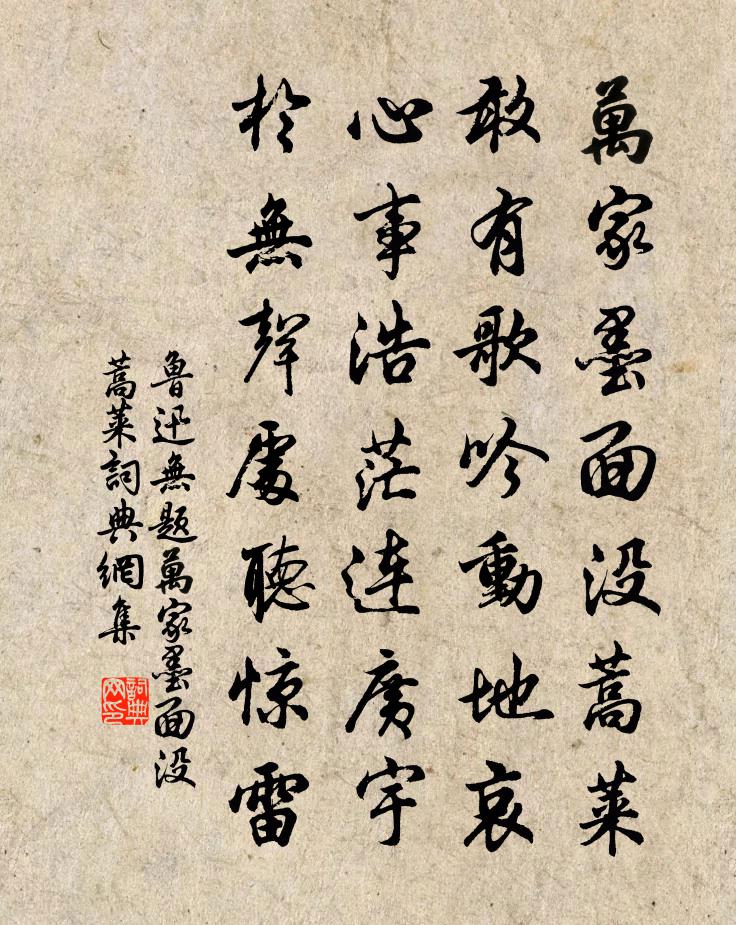 萬家墨面没蒿萊
敢有歌吟動地哀
心事浩茫連廣宇
於無聲處聽惊雷
鲁迅無題萬家墨面没
蒿萊詞典網集
詞典
网印